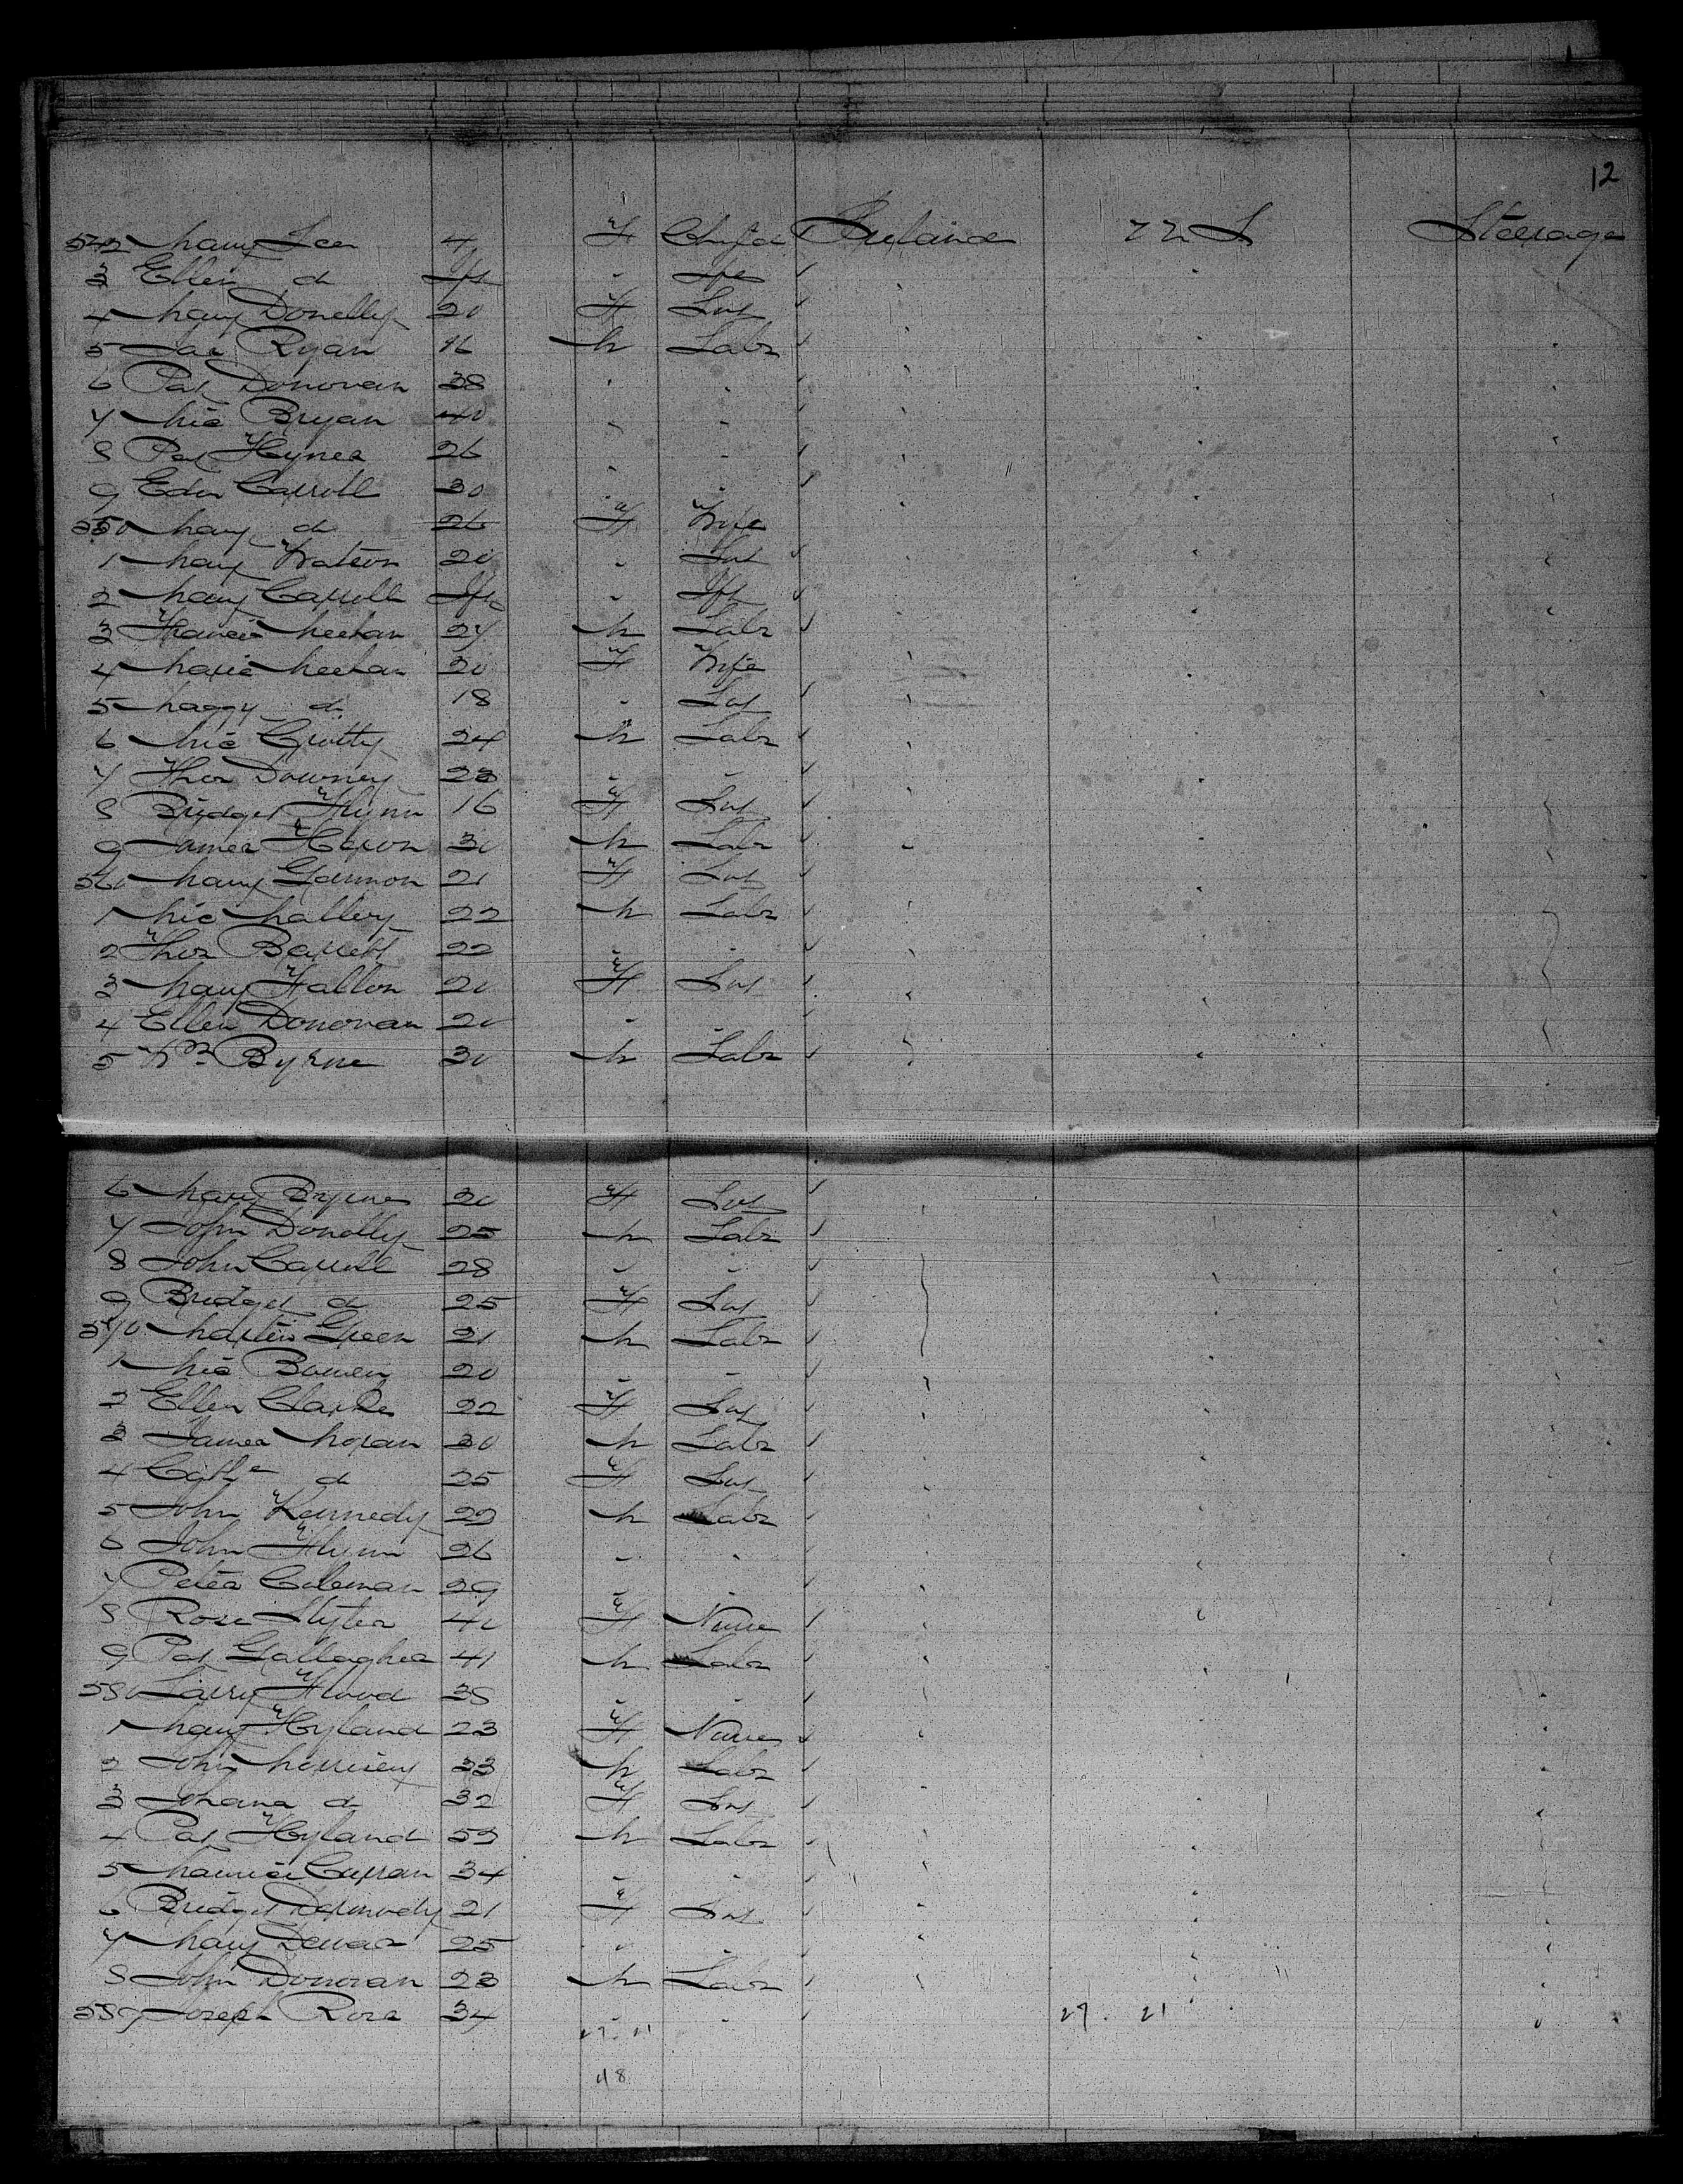 12
542 Mary Lee 4 F Child Ireland U S Steerage
3 Ellen do Inft " Inft
4 Mary Donelly 20 F Svt
5 Jas Ryan 16 M Labr
6 Pat Donovan 38 " "
7 Mic Bryan 40 " "
8 Pat Hynes 26 " "
9 Edw Carroll 30 " "
550 Mary do 26 F Wife
1 Mary Watson 20 " Svt
2 Mary Carroll Inft " Inft
3 Francis Meehan 27 M Labr
4 Marie Meehan 20 F Wife
5 Maggy do 18 " Svt
6 Mic Crotty 24 M Labr
7 Thos Downey 23 " "
8 Bridget Flynn 16 F Svt
9 James Heron 30 M Labr
560 Mary Gannon 21 F Svt
1 Mic Malloy 22 M Labr
2 Thos Barrett 22 " "
3 Mary Fallon 20 F Svt
4 Ellen Donovan 20 " "
5 Wm Byrne 30 M Labr
6 Mary Byrne 20 F Svt
7 John Donelly 25 M Labr
8 John Carroll 28 " "
9 Bridget do 25 F Svt
570 Martin Green 21 M Labr
1 Mic Bowen 20 " "
2 Ellen Clarke 22 F Svt
3 James Moran 30 M Labr
4 Cathe do 25 F Svt
5 John Kennedy 22 M Labr
6 John Flynn 26 " "
7 Peter Coleman 29 " "
8 Rose 40 F Nurse
9 Pat Gallagher 41 M Labr
580 Larry Flood 38 " "
1 Mary Hyland 23 F Nurse
2 John Morrisey 33 M Labr
3 Johana do 32 F Svt
4 Pat Hyland 53 M Labr
5 Maurice Curran 34 " "
6 Bridget Dermody 21 F Svt
7 Mary 25 " "
8 John Donovan 23 M Labr
589 Joseph Rose 34 " " 27. 21
27. 21
48